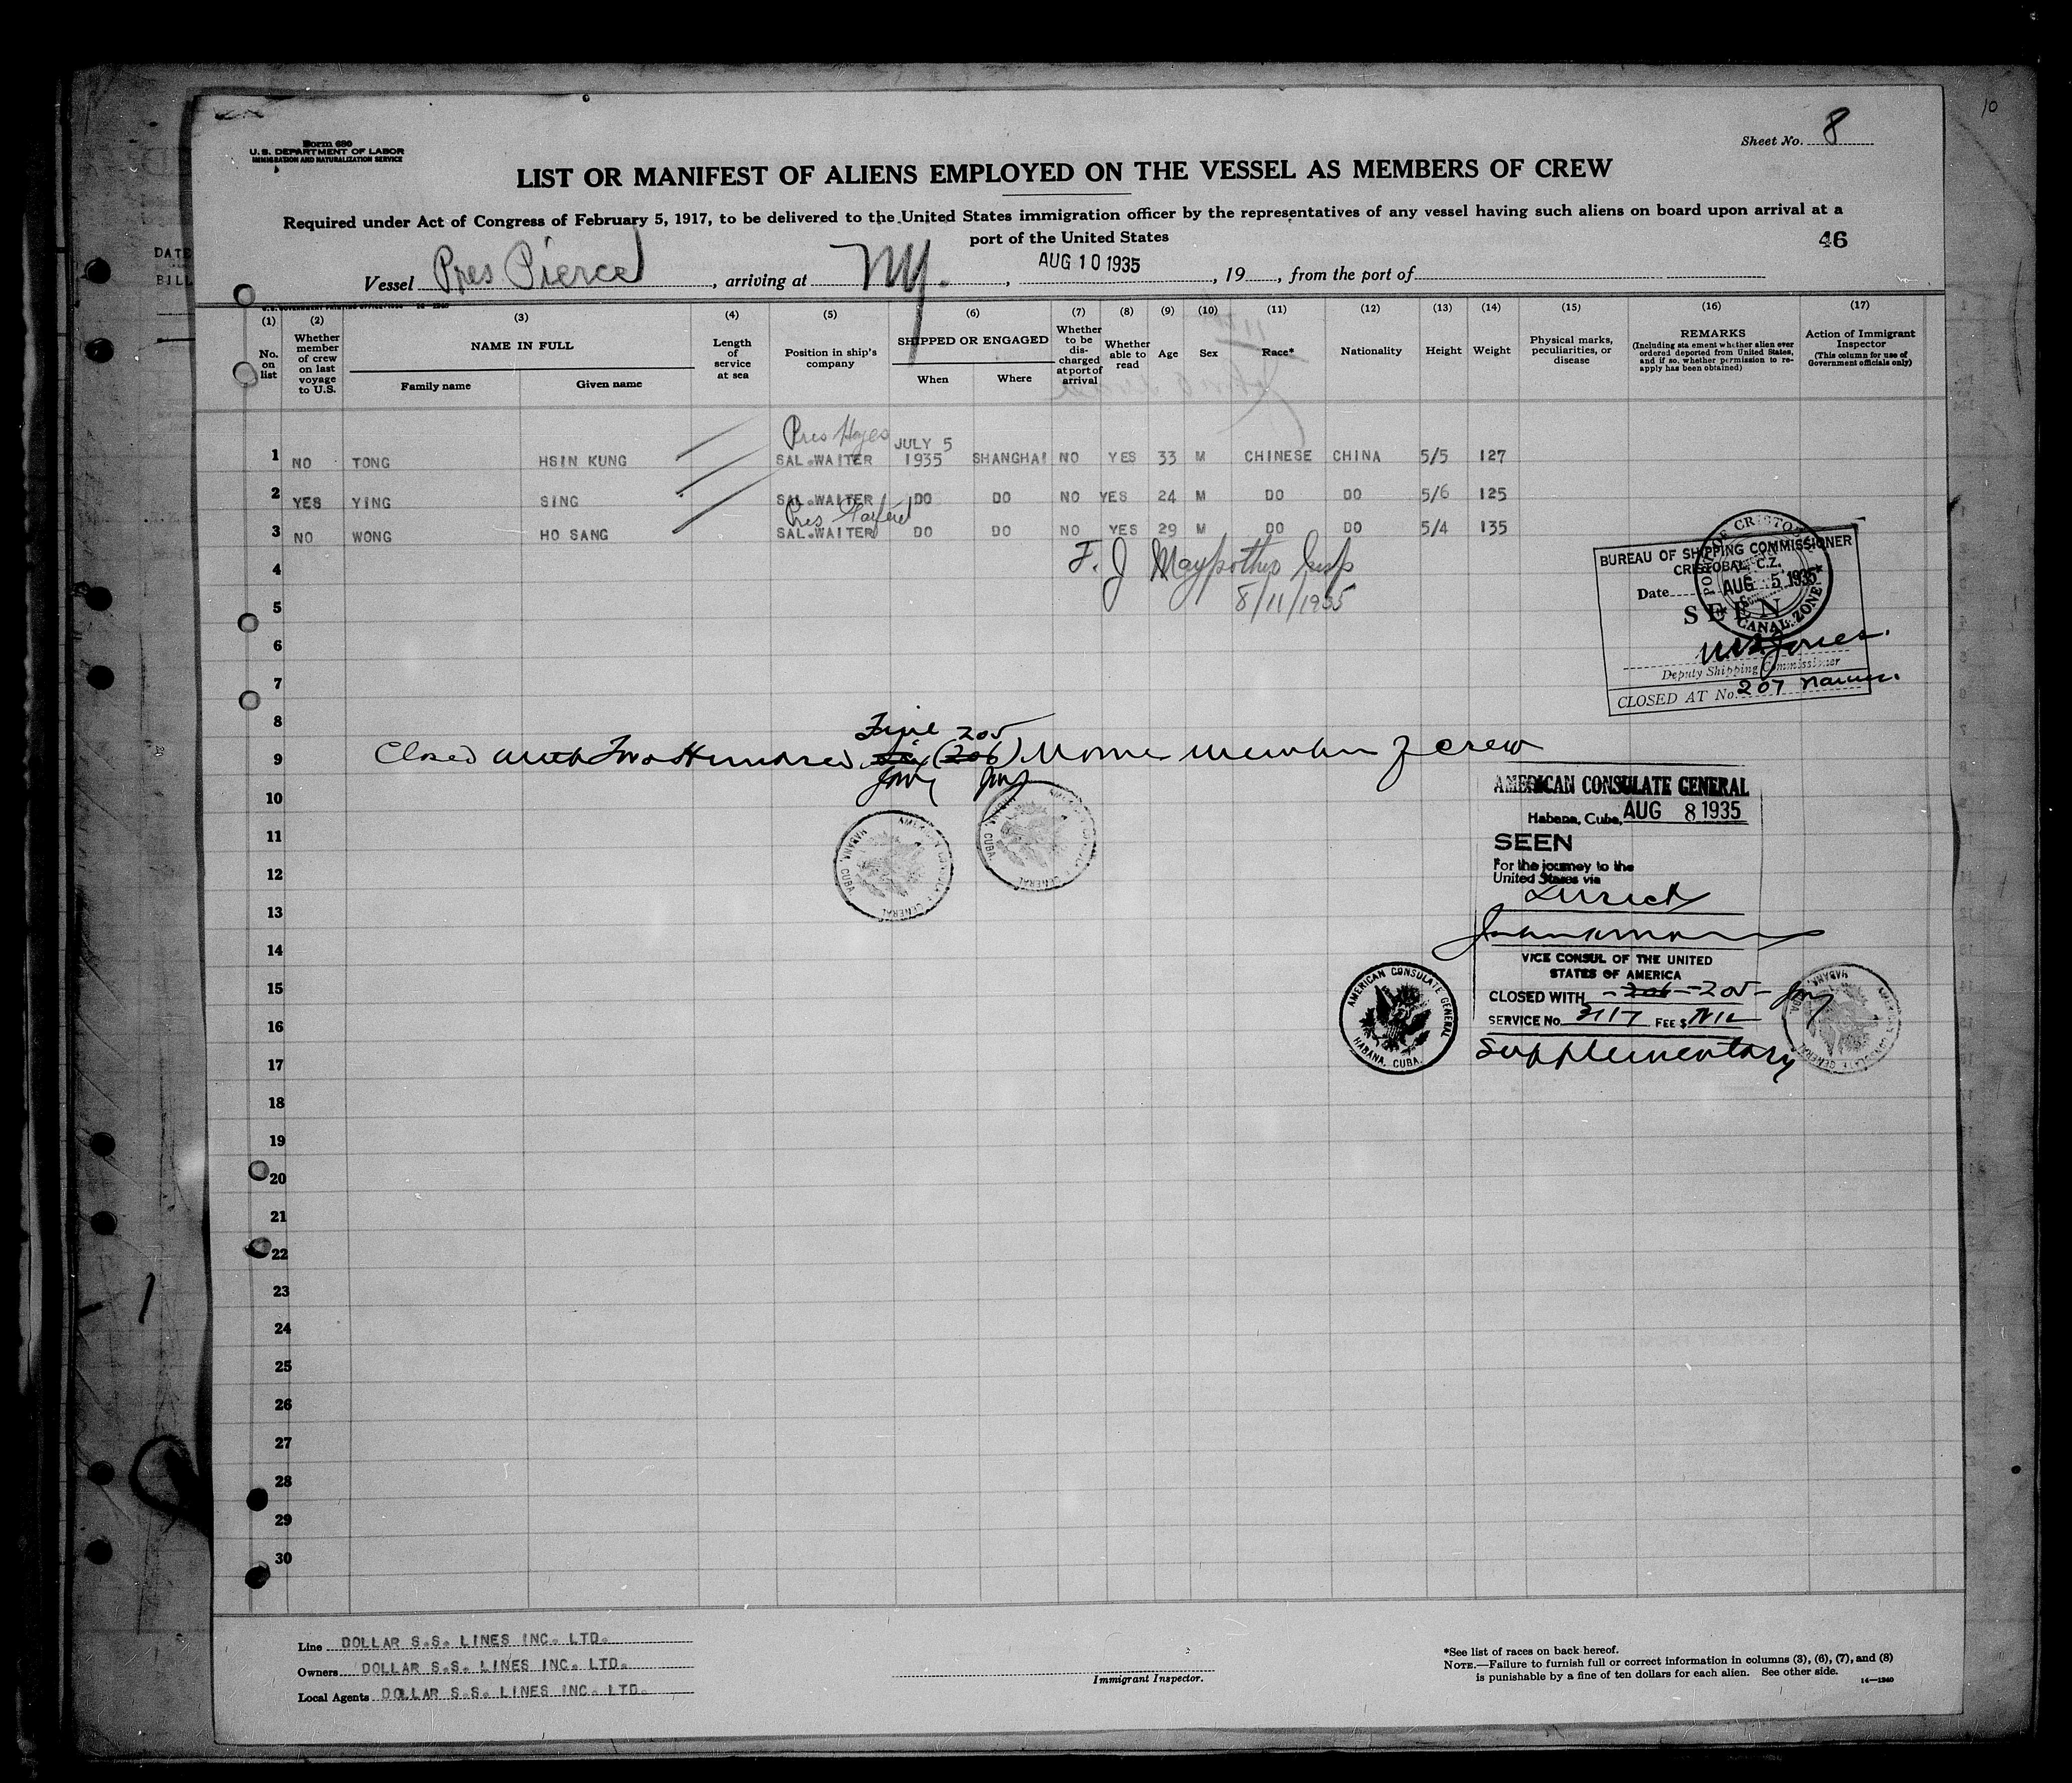 10
Form 680
U.S. DEPARTMENT OF LABOR
IMMIGRATION AND NATURALIZATION SERVICE
Sheet No. 8
LIST OR MANIFEST OF ALIENS EMPLOYED ON THE VESSEL AS MEMBERS OF CREW
Required under Act of Congress of February 5, 1917, to be delivered to the United States immigration officer by the representatives of any vessel having such aliens on board upon arrival at a
port of the United States
46
DATE
BILL
Vessel Pres Pierce, arriving at NY., AUG 10 1935, 19, from the port of
(1) (2) (3) (4) (5) (6) (7) (8) (9) (10) (11) (12) (13) (14) (15) (16) (17)
No. on list
Whether member of crew on last voyage to U.S.
NAME IN FULL
Family name Given name
Length of service at sea
Position in ship's company
SHIPPED OR ENGAGED
When Where
Whether to be discharged at port of arrival
Whether able to read
Age
Sex
Race*
Nationality
Height
Weight
Physical marks, peculiarities, or disease
REMARKS
(Including statement whether alien ever ordered deported from United States, and if so, whether permission to reapply has been obtained)
Action of Immigrant Inspector
(This column for use of Government officials only)
Pres Hayes
1 NO TONG HSIN KUNG SAL.WAITER JULY 5 1935 SHANGHAI NO YES 33 M CHINESE CHINA 5/5 127
2 YES YING SING SAL.WAITER DO DO NO YES 24 M DO DO 5/6 125
Pres Garfield
3 NO WONG HO SANG SAL.WAITER DO DO NO YES 29 M DO DO 5/4 135
4
F. J. Insp
8/11/1935
5
6
7
8
BUREAU OF SHIPPING COMMISSIONER
CRISTOBAL, C.Z.
Date AUG 5 1935
SEEN
PORT OF CRISTOBAL
CANAL ZONE
Jones
Deputy Shipping Commissioner
CLOSED AT No. 207 names.
Five 205
9 Closed with Two Hundred Six (206) names members of crew
10
11
12
13
14
15
16
17
18
19
20
21
22
23
24
25
26
27
28
29
30
AMERICAN CONSULATE GENERAL
HABANA, CUBA
AMERICAN CONSULATE GENERAL
HABANA, CUBA
AMERICAN CONSULATE GENERAL
Habana, Cuba, AUG 8 1935
SEEN
For the journey to the
United States via
Direct
VICE CONSUL OF THE UNITED
STATES OF AMERICA
CLOSED WITH -206- -205-
SERVICE No. 3117 FEE $ Nil
Supplementary
AMERICAN CONSULATE GENERAL
HABANA, CUBA.
AMERICAN CONSULATE GENERAL
HABANA, CUBA
Line DOLLAR S.S. LINES INC. LTD.
Owners DOLLAR S.S. LINES INC. LTD.
Local Agents DOLLAR S.S. LINES INC. LTD.
Immigrant Inspector.
*See list of races on back hereof.
NOTE.—Failure to furnish full or correct information in columns (3), (6), (7), and (8)
is punishable by a fine of ten dollars for each alien. See other side.
14—1240